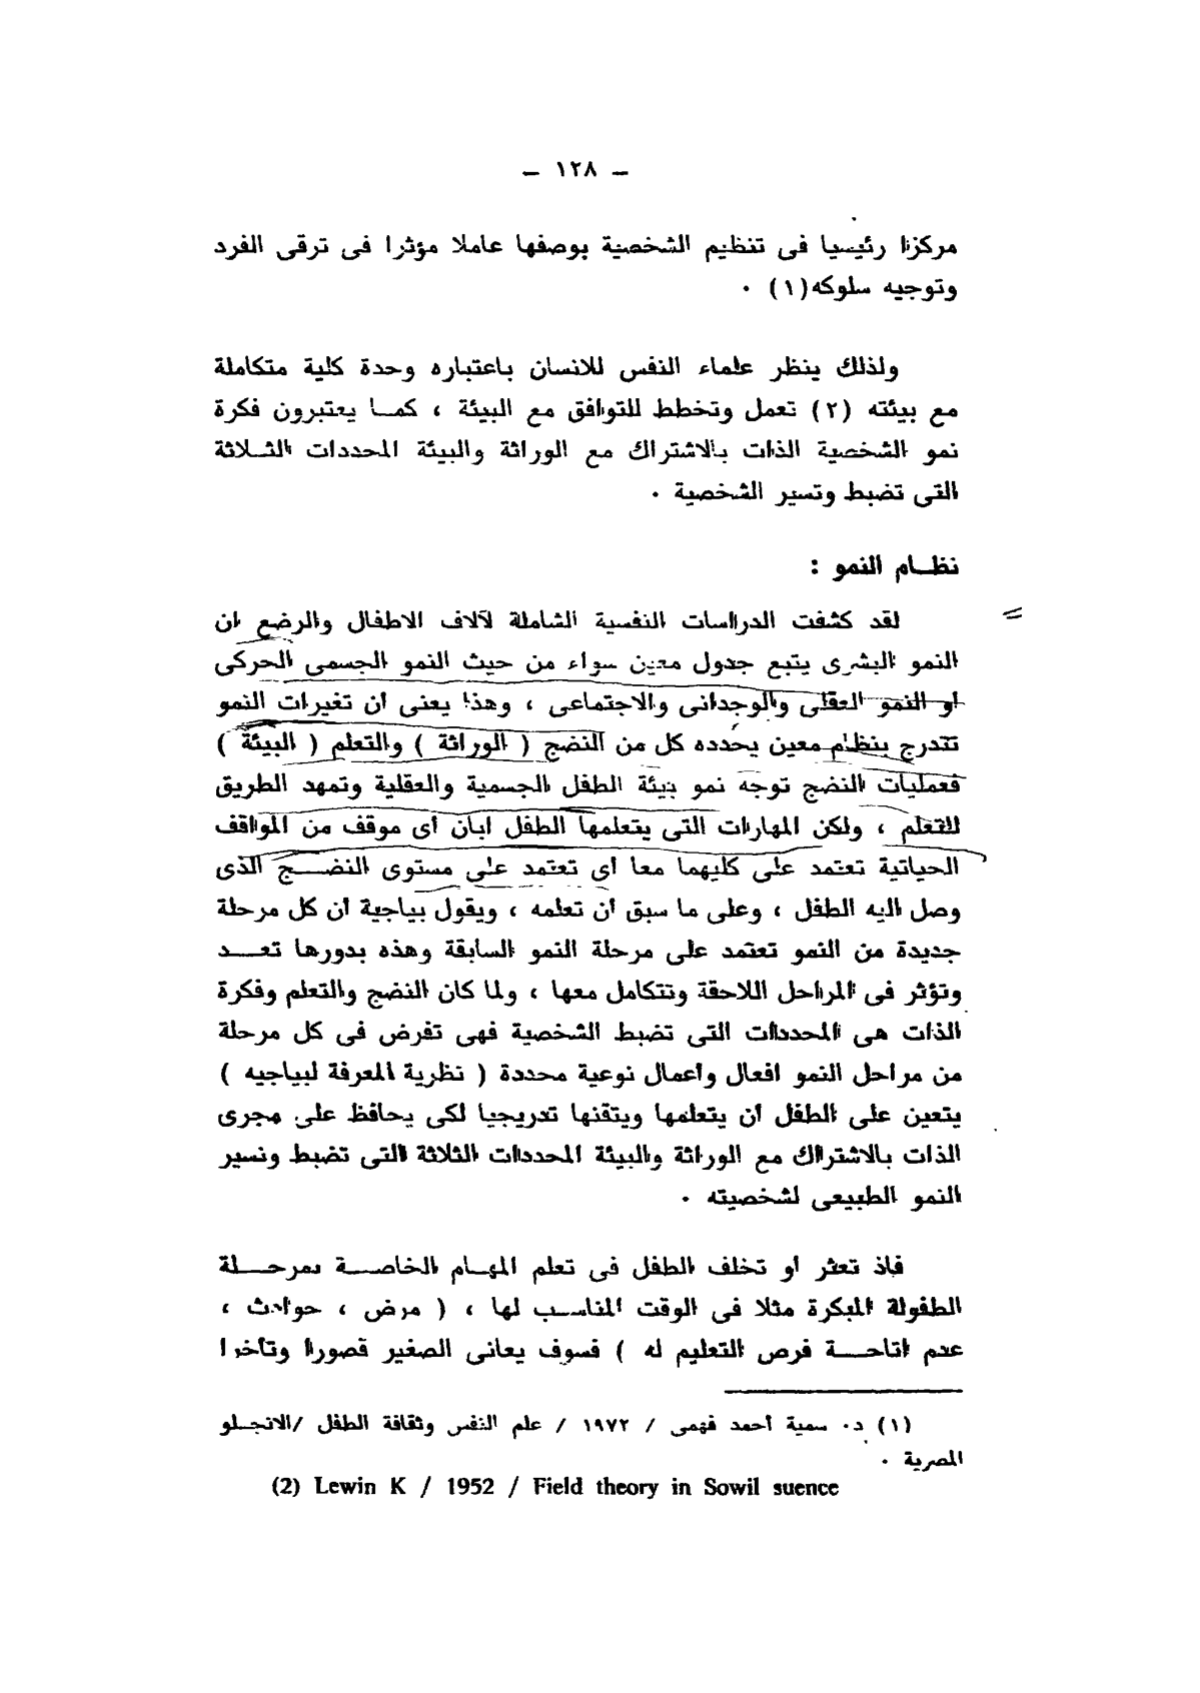 – ١٢٨ –
مركزا رئيسيا فى تنظيم الشخصية بوصفها عاملا مؤثرا فى ترقى الفرد
وتوجيه سلوكه(١) ٠
ولذلك ينظر علماء النفس للانسان باعتباره وحدة كلية متكاملة
مع بيئته (٢) تعمل وتخطط للتوافق مع البيئة ، كمـا يعتبرون فكرة
نمو الشخصية الذات بالاشتراك مع الوراثة والبيئة المحددات الثـلاثة
التى تضبط وتسير الشخصية ٠
نظـام النمو :
لقد كشفت الدراسات النفسية الشاملة لآلاف الاطفال والرضع ان
النمو البشرى يتبع جدول معين سواء من حيث النمو الجسمى الحركى
او النمو العقلى والوجدانى والاجتماعى ، وهذا يعنى ان تغيرات النمو
تتدرج بنظام معين يحدده كل من النضج ( الوراثة ) والتعلم ( البيئة )
فعمليات النضج توجه نمو بيئة الطفل الجسمية والعقلية وتمهد الطريق
للتعلم ، ولكن المهارات التى يتعلمها الطفل ابان أى موقف من المواقف
الحياتية تعتمد على كليهما معا أى تعتمد على مستوى النضـــج الذى
وصل اليه الطفل ، وعلى ما سبق ان تعلمه ، ويقول بياجية ان كل مرحلة
جديدة من النمو تعتمد على مرحلة النمو السابقة وهذه بدورها تعـــد
وتؤثر فى المراحل اللاحقة وتتكامل معها ، ولما كان النضج والتعلم وفكرة
الذات هى المحددات التى تضبط الشخصية فهى تفرض فى كل مرحلة
من مراحل النمو افعال واعمال نوعية محددة ( نظرية المعرفة لبياجيه )
يتعين على الطفل ان يتعلمها ويتقنها تدريجيا لكى يحافظ على مجرى
الذات بالاشتراك مع الوراثة والبيئة المحددات الثلاثة التى تضبط ونسير
النمو الطبيعى لشخصيته ٠
فاذ تعثر او تخلف الطفل فى تعلم المهـام الخاصـــة بمرحـــلة
الطفولة المبكرة مثلا فى الوقت المناسـب لها ، ( مرض ، حوادث ،
عدم اتاحـــة فرص التعليم له ) فسوف يعانى الصغير قصورا وتأخرا
(١) د٠ سمية أحمد فهمى / ١٩٧٢ / علم النفس وثقافة الطفل /الانجـلو
المصرية ٠
(2) Lewin K / 1952 / Field theory in Sowil suence